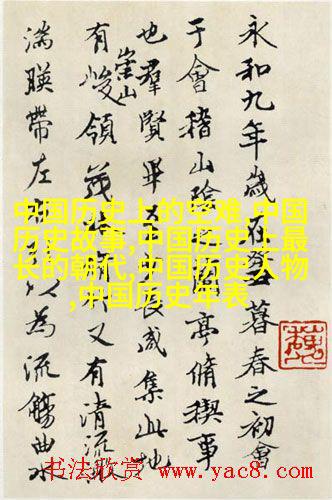 永和九年歲在癸丑暮春之初會
于會稽山陰蘭亭脩稧事
也羣賢畢至長咸集此地
有崇山峻領茂又有清流激
湍暎帶左以為流觴曲水
中国历史上的空难,中国
历史故事,中国历史上最
长的朝代,中国历史人物
,中国历史年表
书法欣赏 www.yac8.com